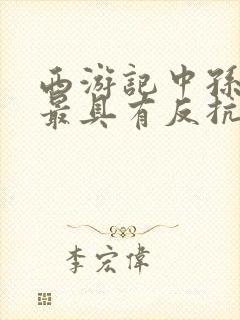 西游記中孫
最具有反抗
李宏偉